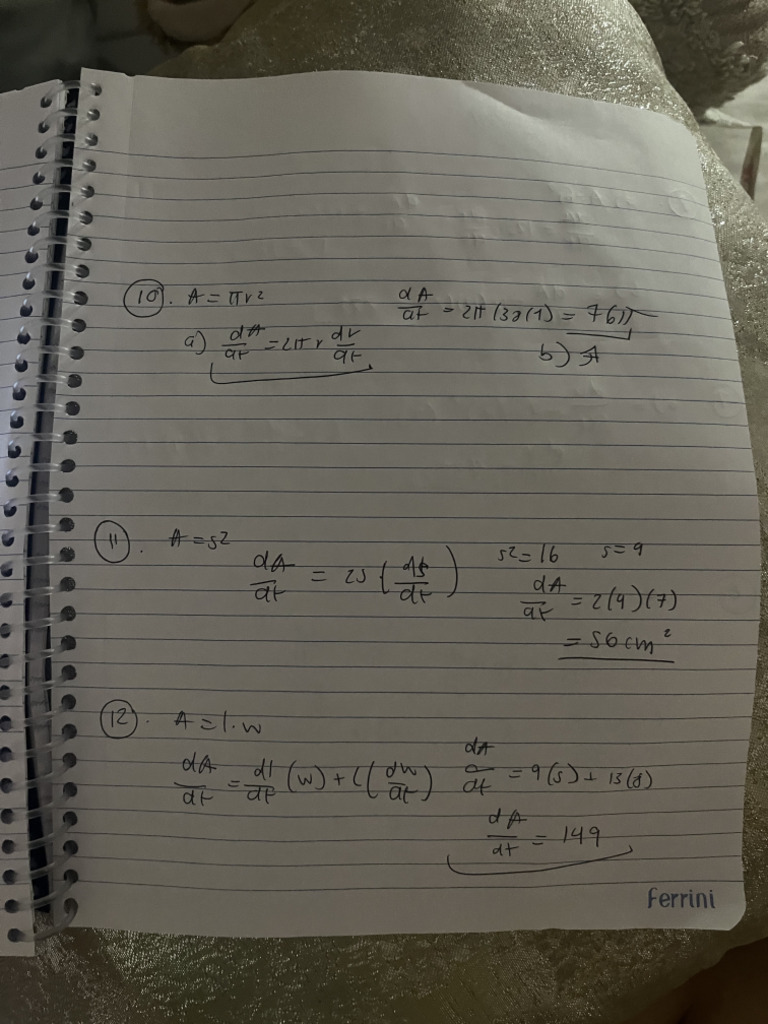 10. A = πr2
a) dA/dt = 2π r dr/dt
dA/dt = 2π (38(1) = 76π
b) A
11. A = s2
dA/dt = 2s (ds/dt)
s2 = 16 s = 4
dA/dt = 2(4)(7)
= 56 cm²
12. A = l · w
dA/dt = dl/dt (w) + l (dw/dt)
dA/dt = 9(5) + 13(8)
dA/dt = 149
Ferrini